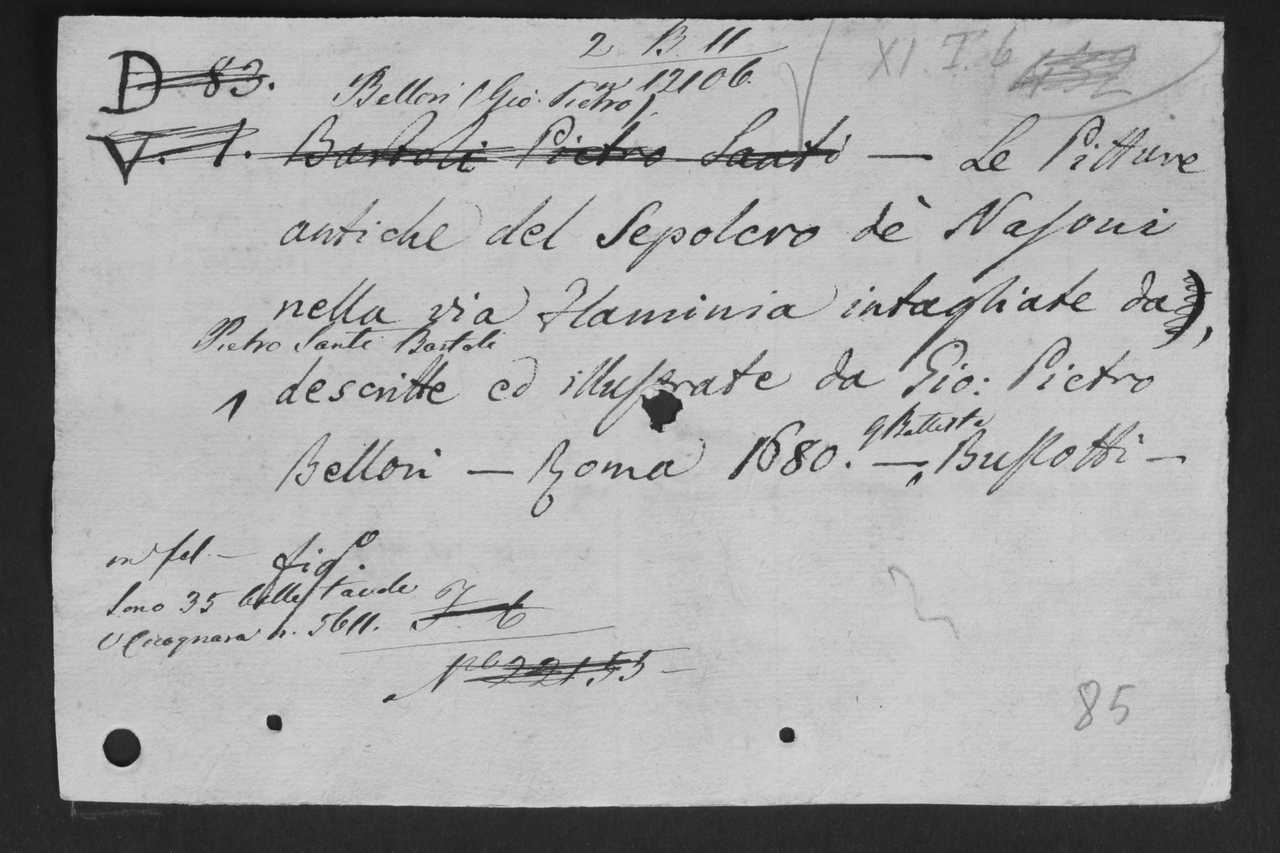 2 B 11
XI. I. 6
D 83.
Bellori (Gio. Pietro) 12106.
V. 1. Bartoli Pietro Santi — Le Pitture
antiche del Sepolcro dè Nasoni
nella via Flaminia intagliate da
Pietro Santi Bartoli
descritte ed illustrate da Gio: Pietro
G Battista
Bellori — Roma 1680. — Bussotti —
in fol. — fig.o
Sono 35 belle tavole
V Cicognara n. 3611.
No 22155 —
85